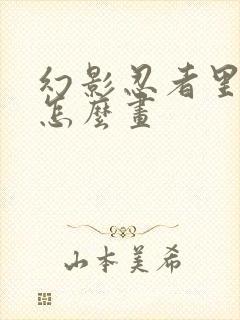 幻影忍者
怎麼畫
山本美希